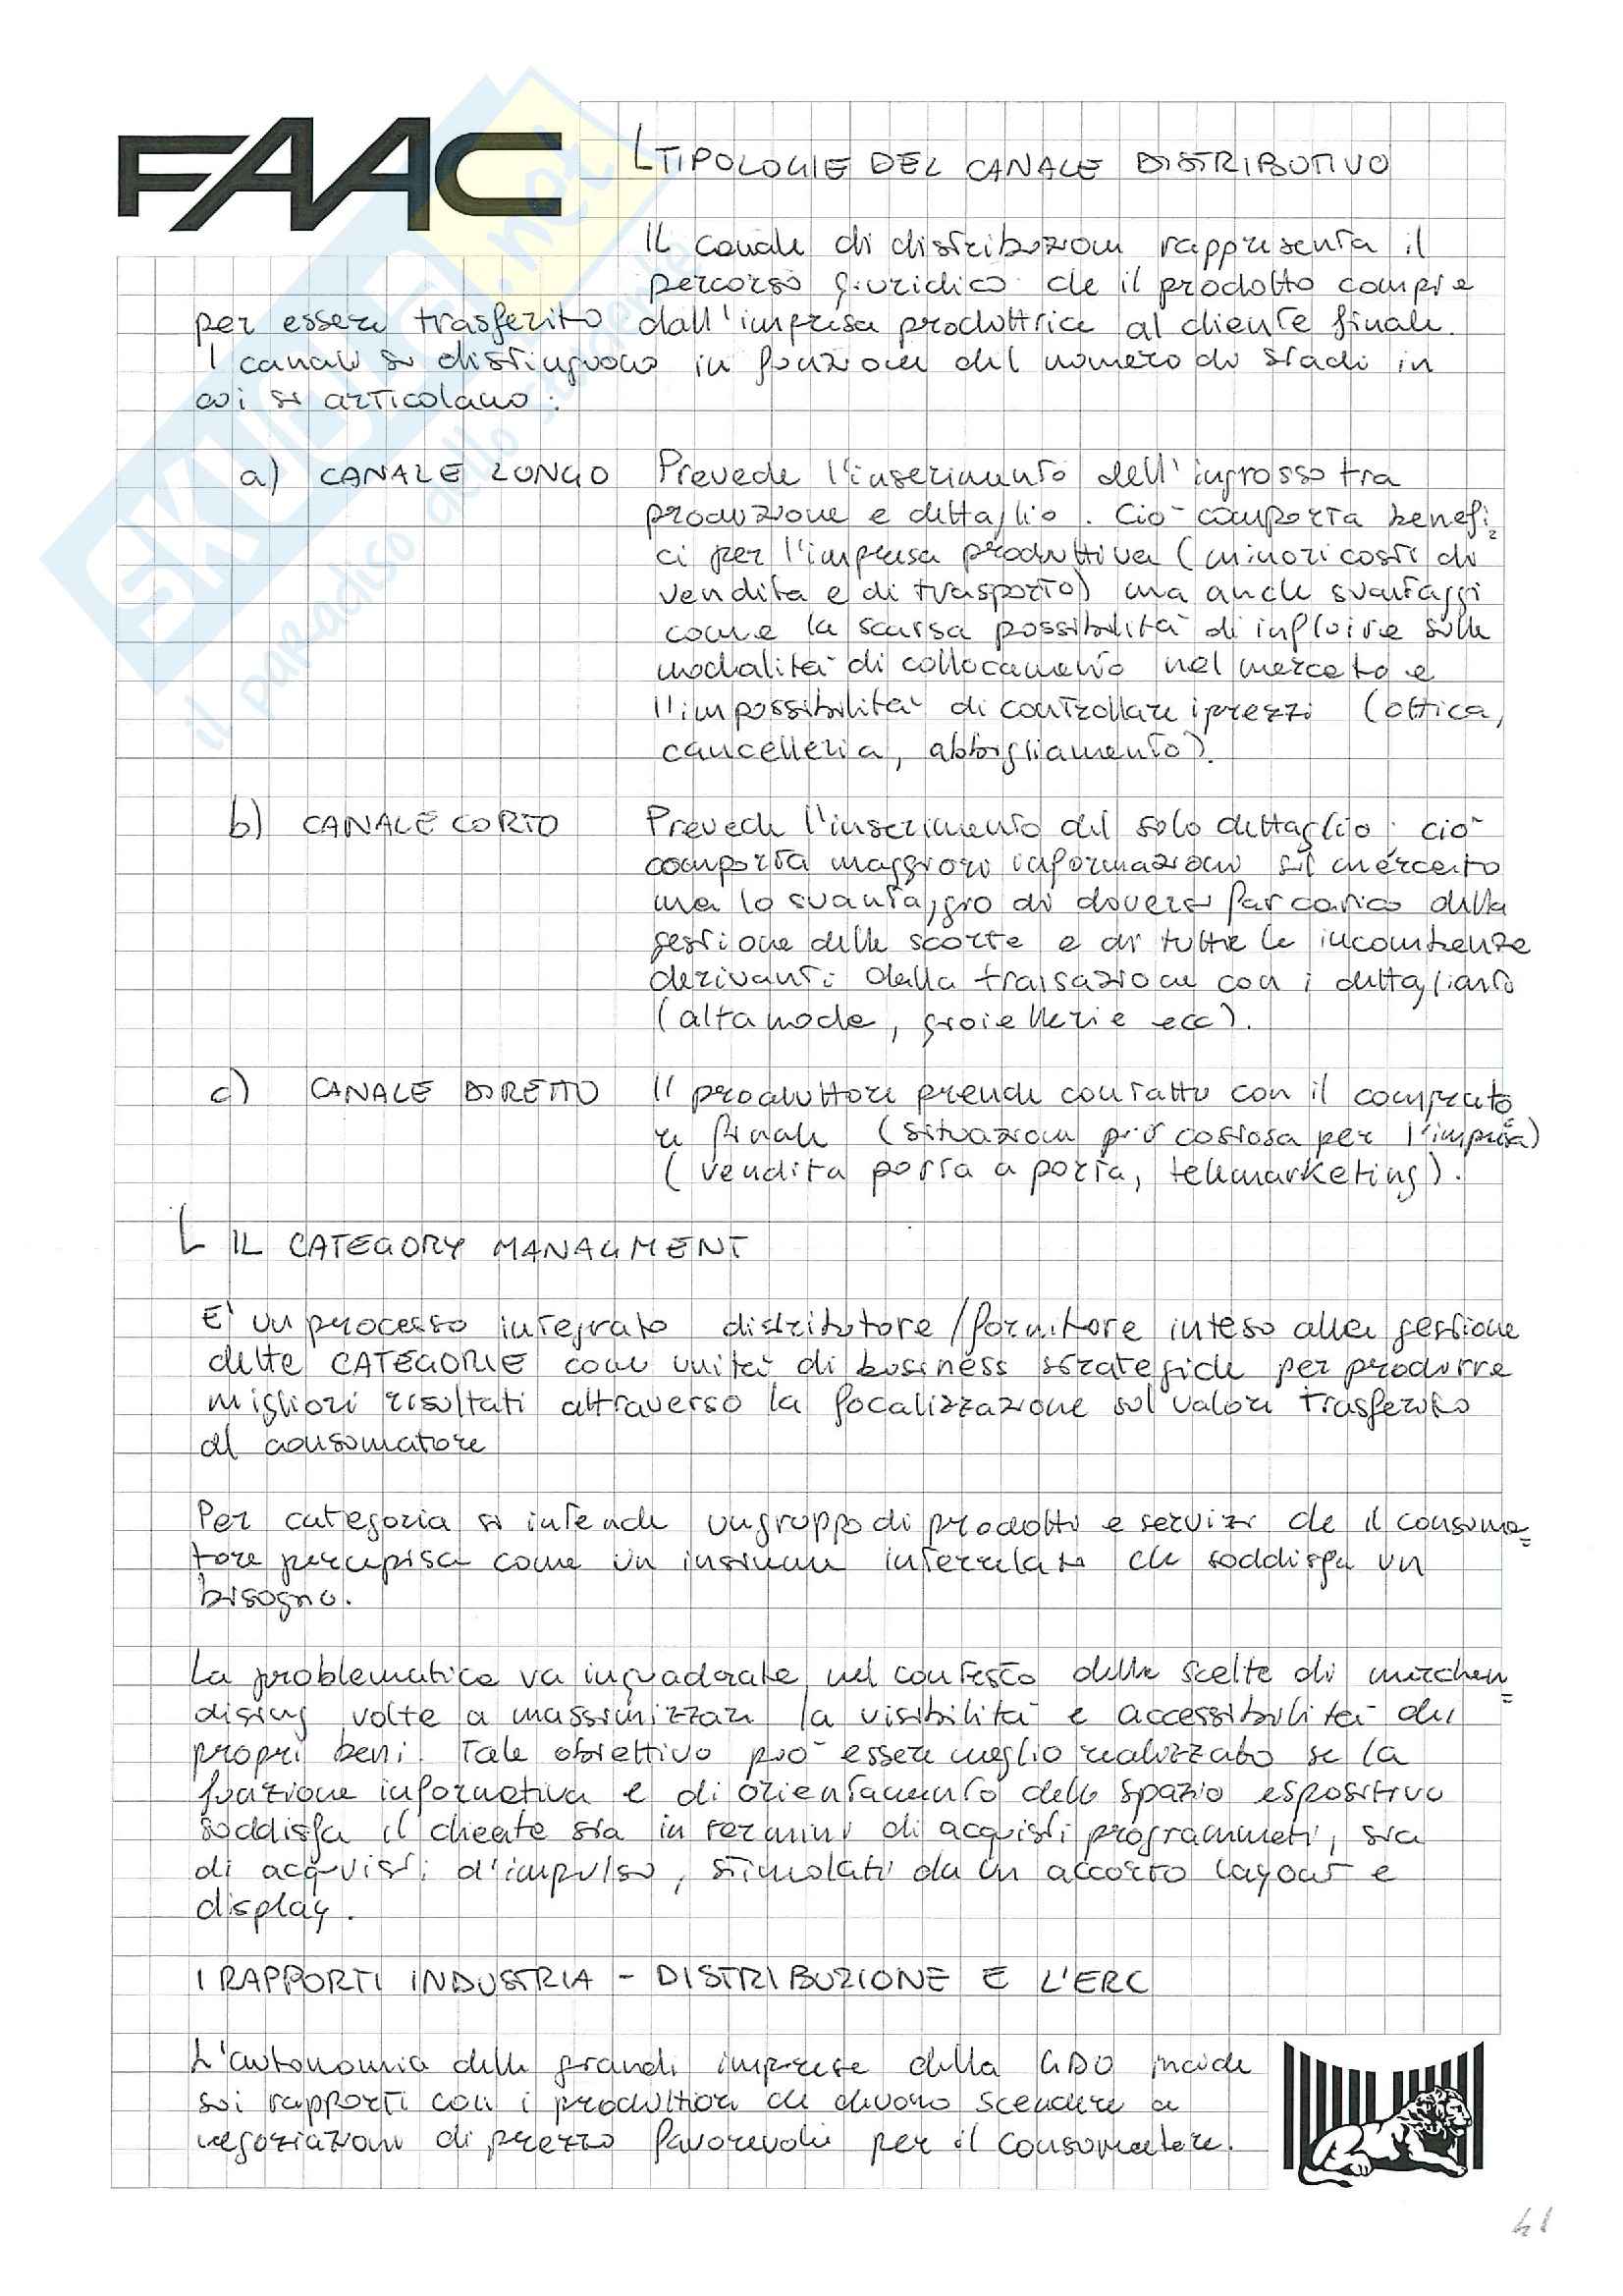 FAAC
TIPOLOGIE DEL CANALE DISTRIBUTIVO
Il canale di distribuzione rappresenta il
percorso giuridico che il prodotto compie
per essere trasferito dall'impresa produttrice al cliente finale.
I canali si distinguono in funzione del numero di stadi in
cui si articolano:
a) CANALE LUNGO Prevede l'inserimento dell'ingrosso tra
produzione e dettaglio. Ciò comporta benefi=
ci per l'impresa produttiva (minori costi di
vendita e di trasporto) ma anche svantaggi
come la scarsa possibilità di influire sulle
modalità di collocamento nel mercato e
l'impossibilità di controllare i prezzi (ottica,
cancelleria, abbigliamento).
b) CANALE CORTO Prevede l'inserimento del solo dettaglio; ciò
comporta maggiori informazioni sul mercato
ma lo svantaggio di doversi far carico della
gestione delle scorte e di tutte le incombenze
derivanti dalla transazione con i dettaglianti
(alta moda, gioiellerie ecc).
c) CANALE DIRETTO Il produttore prende contatto con il comprato
re finale (situazione più costosa per l'impresa)
(vendita porta a porta, telemarketing).
IL CATEGORY MANAGMENT
E' un processo integrato distributore/fornitore inteso alla gestione
delle CATEGORIE come unità di business strategiche per produrre
migliori risultati attraverso la focalizzazione sul valore trasferito
al consumatore
Per categoria si intende un gruppo di prodotti e servizi che il consuma=
tore percepisce come un insieme interrelato che soddisfa un
bisogno.
La problematica va inquadrata nel contesto delle scelte di merchan=
dising volte a massimizzare la visibilità e accessibilità dei
propri beni. Tale obiettivo può essere meglio realizzato se la
funzione informativa e di orientamento dello spazio espositivo
soddisfa il cliente sia in termini di acquisti programmati, sia
di acquisti d'impulso, stimolati da un accorto layout e
display.
I RAPPORTI INDUSTRIA - DISTRIBUZIONE E L'ERC
L'autonomia delle grandi imprese della GDO incide
sui rapporti con i produttori che devono scendere a
negoziazioni di prezzo favorevoli per il consumatore.
41
SKUOLA.net
il paradiso dello studente